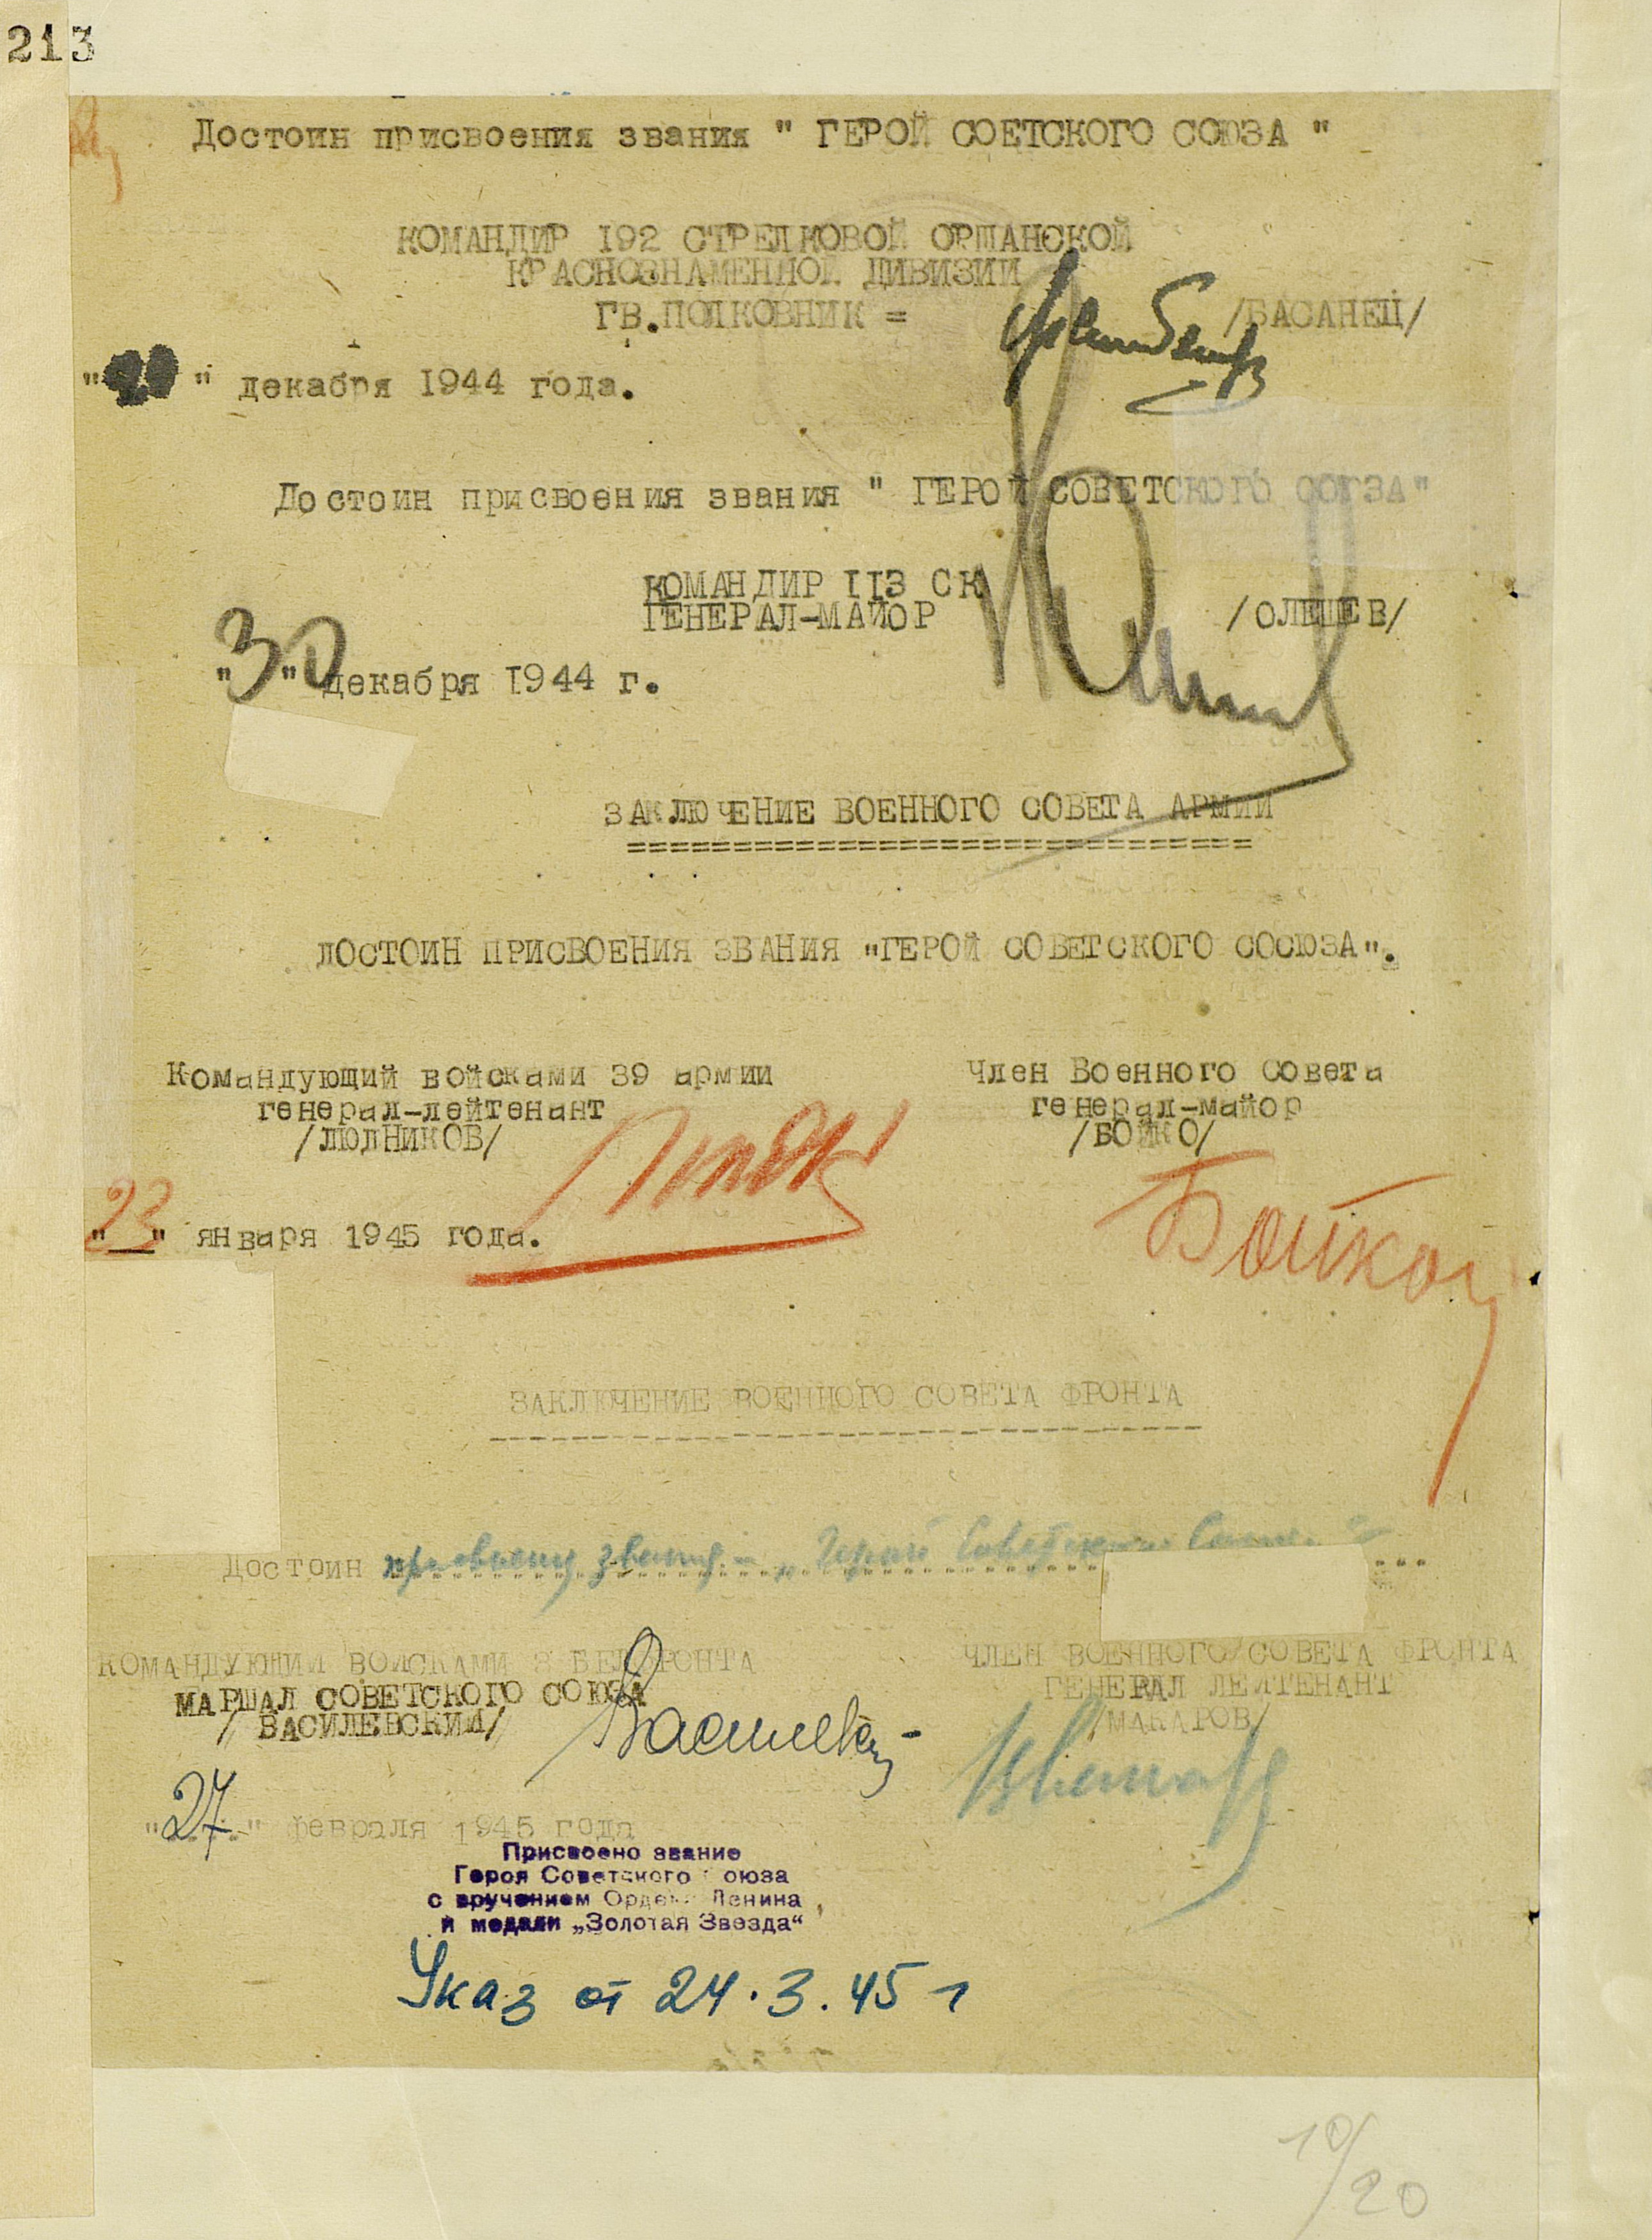 213
Достоин присвоения звания " ГЕРОЙ СОЕТСКОГО СОЮЗА "
КОМАНДИР 192 СТРЕЛКОВОЙ ОРШАНСКОЙ
КРАСНОЗНАМЕННОЙ ДИВИЗИИ
ГВ.ПОЛКОВНИК = /БАСАНЕЦ/
" " декабря 1944 года.
Достоин присвоения звания " ГЕРОЙ СОВЕТСКОГО СОЮЗА"
КОМАНДИР 113 СК
ГЕНЕРАЛ-МАЙОР /ОЛЕШЕВ/
"30" декабря 1944 г.
ЗАКЛЮЧЕНИЕ ВОЕННОГО СОВЕТА АРМИИ
==============================
ДОСТОИН ПРИСВОЕНИЯ ЗВАНИЯ "ГЕРОЙ СОВЕТСКОГО СОСЮЗА".
Командующий войсками 39 армии Член Военного Совета
генерал-лейтенант генерал-майор
/ЛЮДНИКОВ/ /БОЙКО/
Бойко
"23" января 1945 года.
ЗАКЛЮЧЕНИЕ ВОЕННОГО СОВЕТА ФРОНТА
Достоин присвоения звания - "Герой Советского Союза"
КОМАНДУЮЩИЙ ВОЙСКАМИ 3 БЕЛ.ФРОНТА ЧЛЕН ВОЕННОГО СОВЕТА ФРОНТА
МАРШАЛ СОВЕТСКОГО СОЮЗА ГЕНЕРАЛ ЛЕЙТЕНАНТ
/ВАСИЛЕВСКИЙ/ /МАКАРОВ/
"27" февраля 1945 года
Присвоено звание
Героя Советского Союза
с вручением Ордена Ленина
и медали „Золотая Звезда“
Указ от 24.3.45 г
10/20